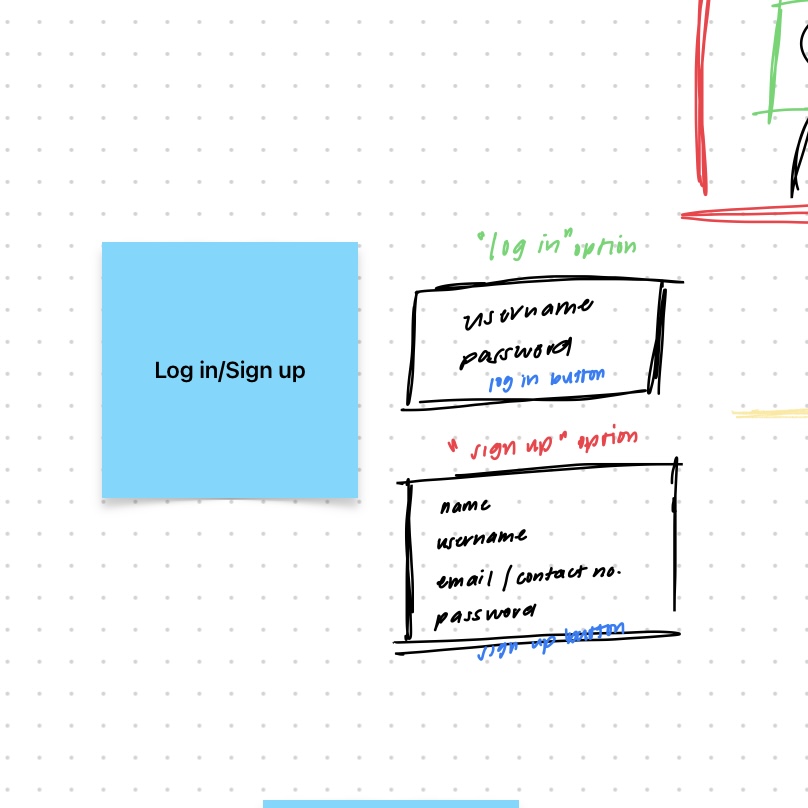 Log in/Sign up
"log in" option
username
password
log in button
"sign up" option
name
username
email / contact no.
password
sign up button